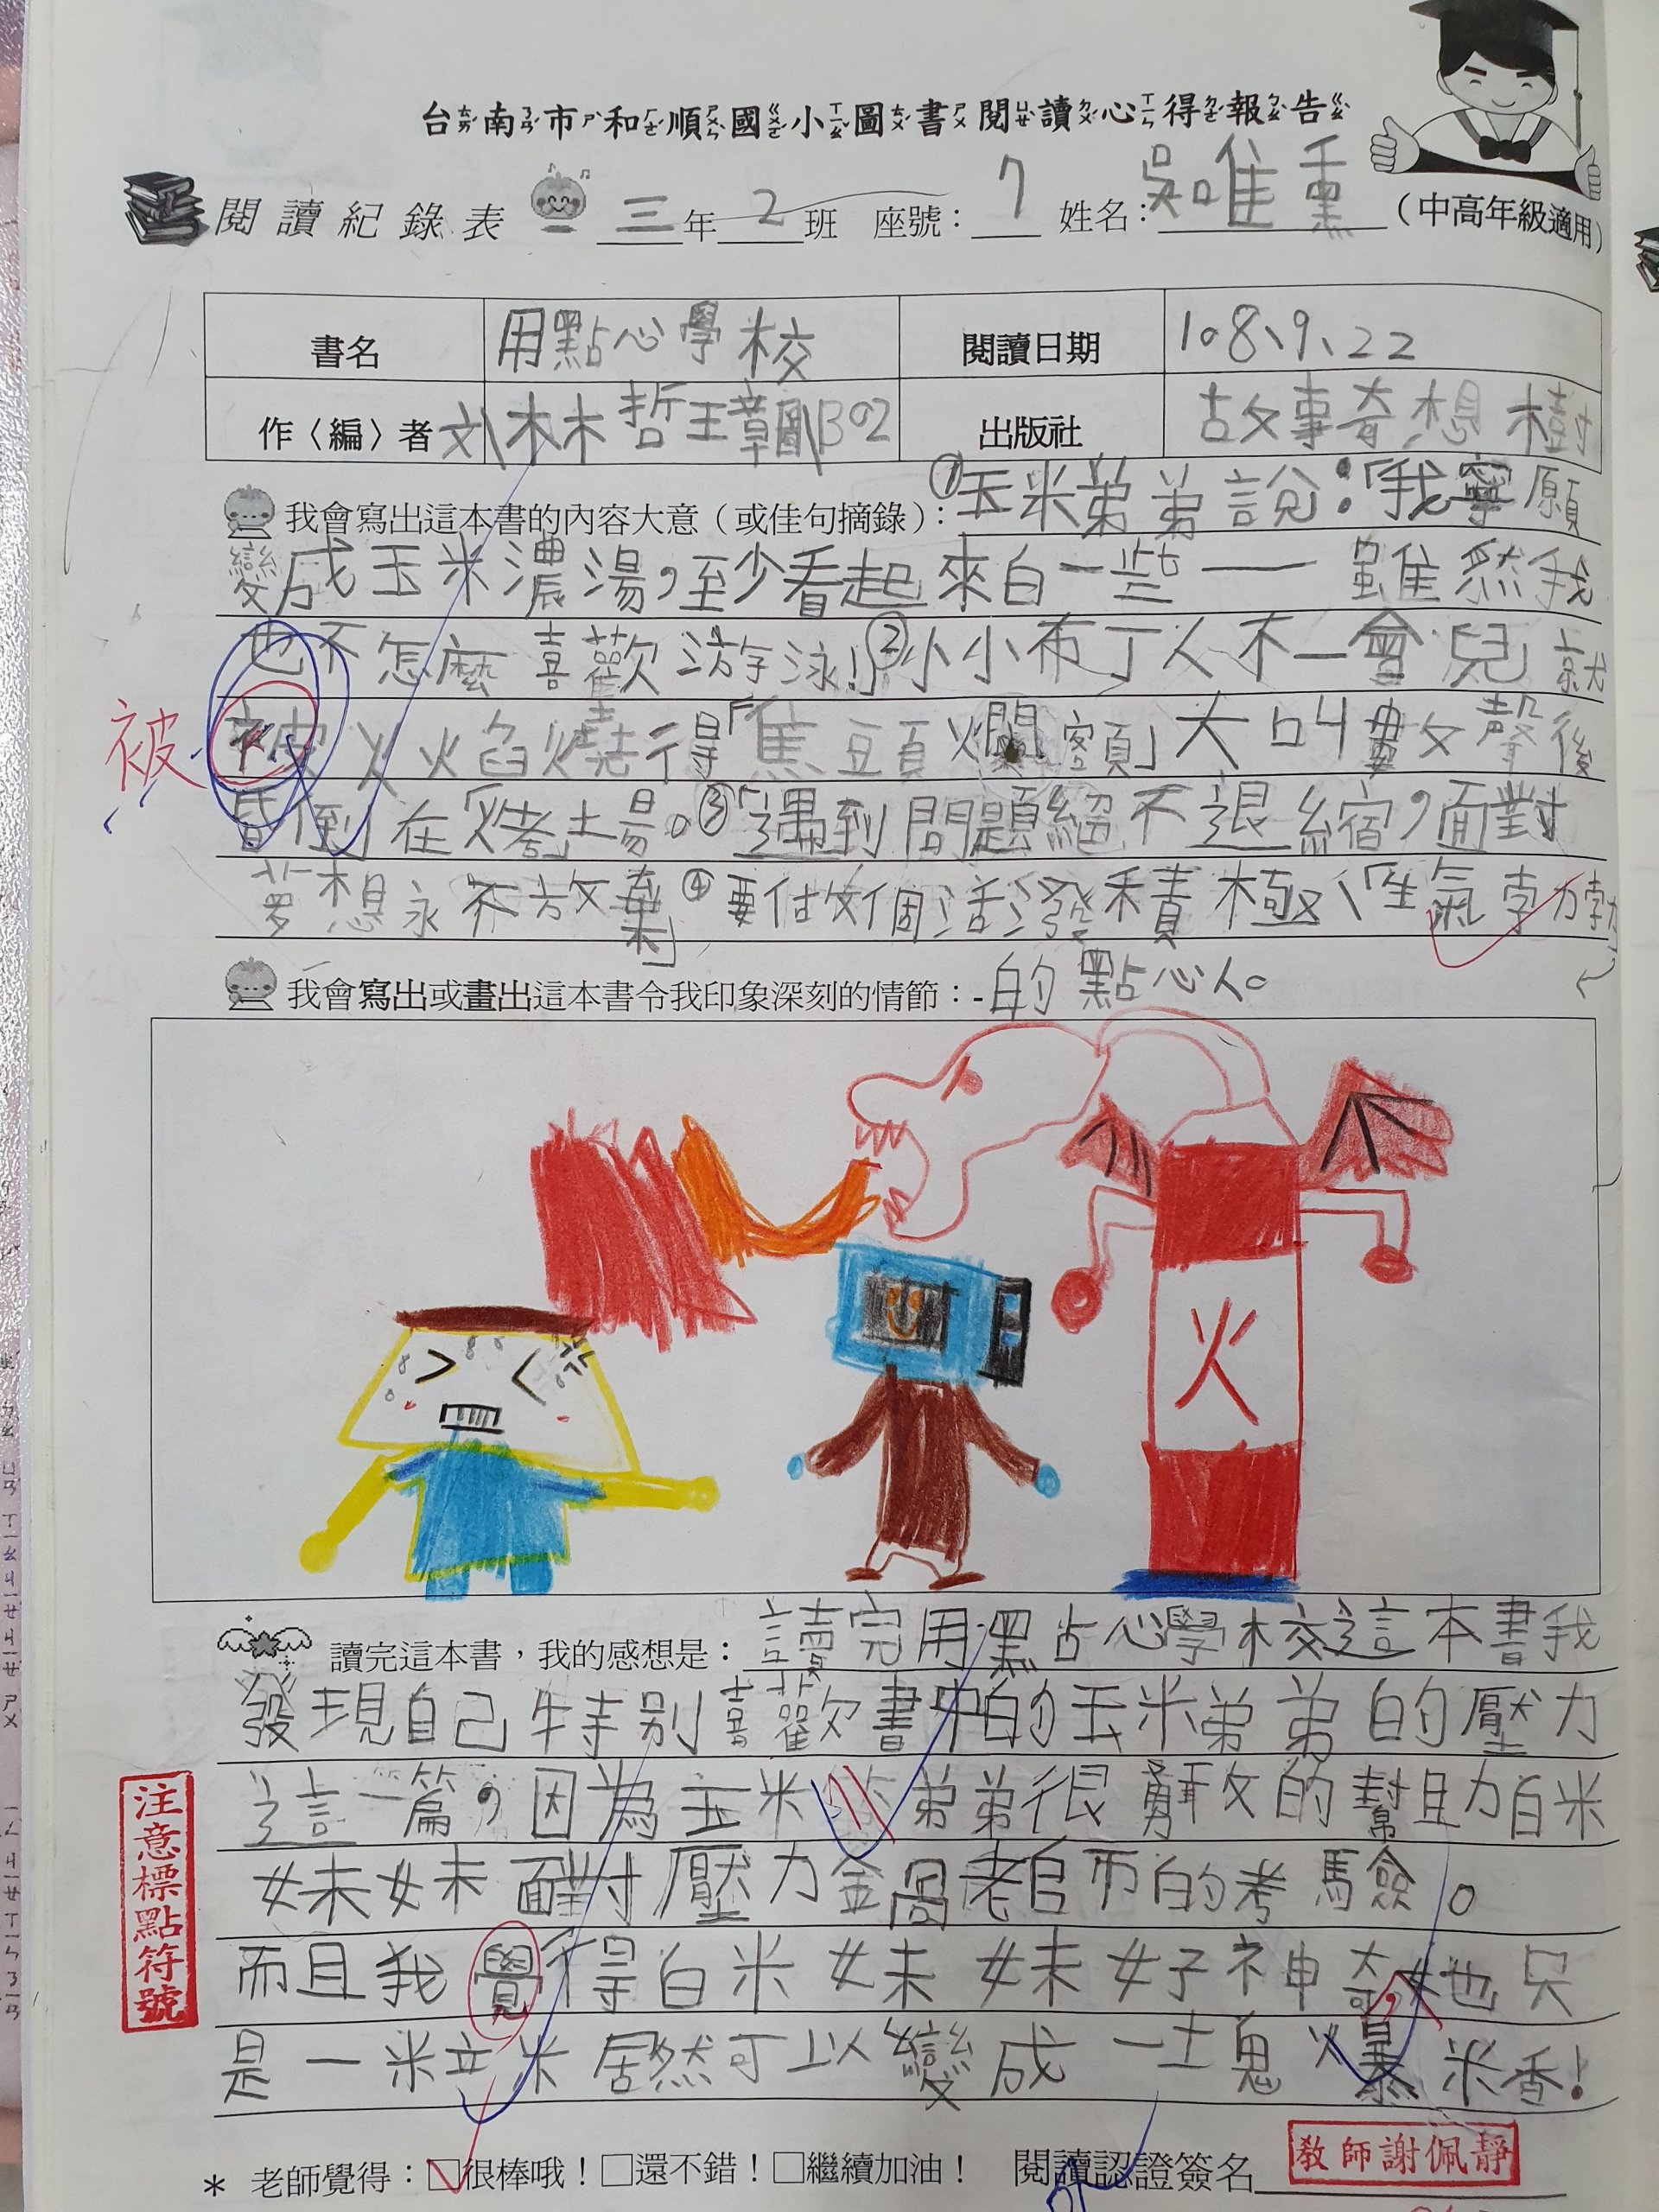 台南市和順國小圖書閱讀心得報告
閱讀紀錄表 三年2班 座號:7 姓名:吳唯熏 (中高年級適用)
書名 用點心學校 閱讀日期 108、9、22
作〈編〉者 文\林哲璋圖\BO2 出版社 故事奇想樹
我會寫出這本書的內容大意(或佳句摘錄):①玉米弟弟說:「我寧願
變成玉米濃湯,至少看起來白一些——雖然我
也不怎麼喜歡游泳!」②小小布丁人不一會兒就
被 被火火焰燒得「焦頭爛額」大叫數聲後
昏倒在「火考」場。③「遇到問題絕不退縮,面對
夢想永不放棄」④要做個活潑積極、「生氣勃勃
我會寫出或畫出這本書令我印象深刻的情節:的點心人。
火
讀完這本書,我的感想是:讀完用點心學校這本書我
發現自己特別喜歡書中的玉米弟弟的壓力
這一篇,因為玉米弟弟很勇敢的幫助白米
妹妹面對壓力鍋老師的考驗。
而且我覺得白米妹妹好神奇,她只
是一粒米居然可以變成一塊爆米香!
注意標點符號
* 老師覺得:☑很棒哦!□還不錯!□繼續加油! 閱讀認證簽名 教師謝佩靜